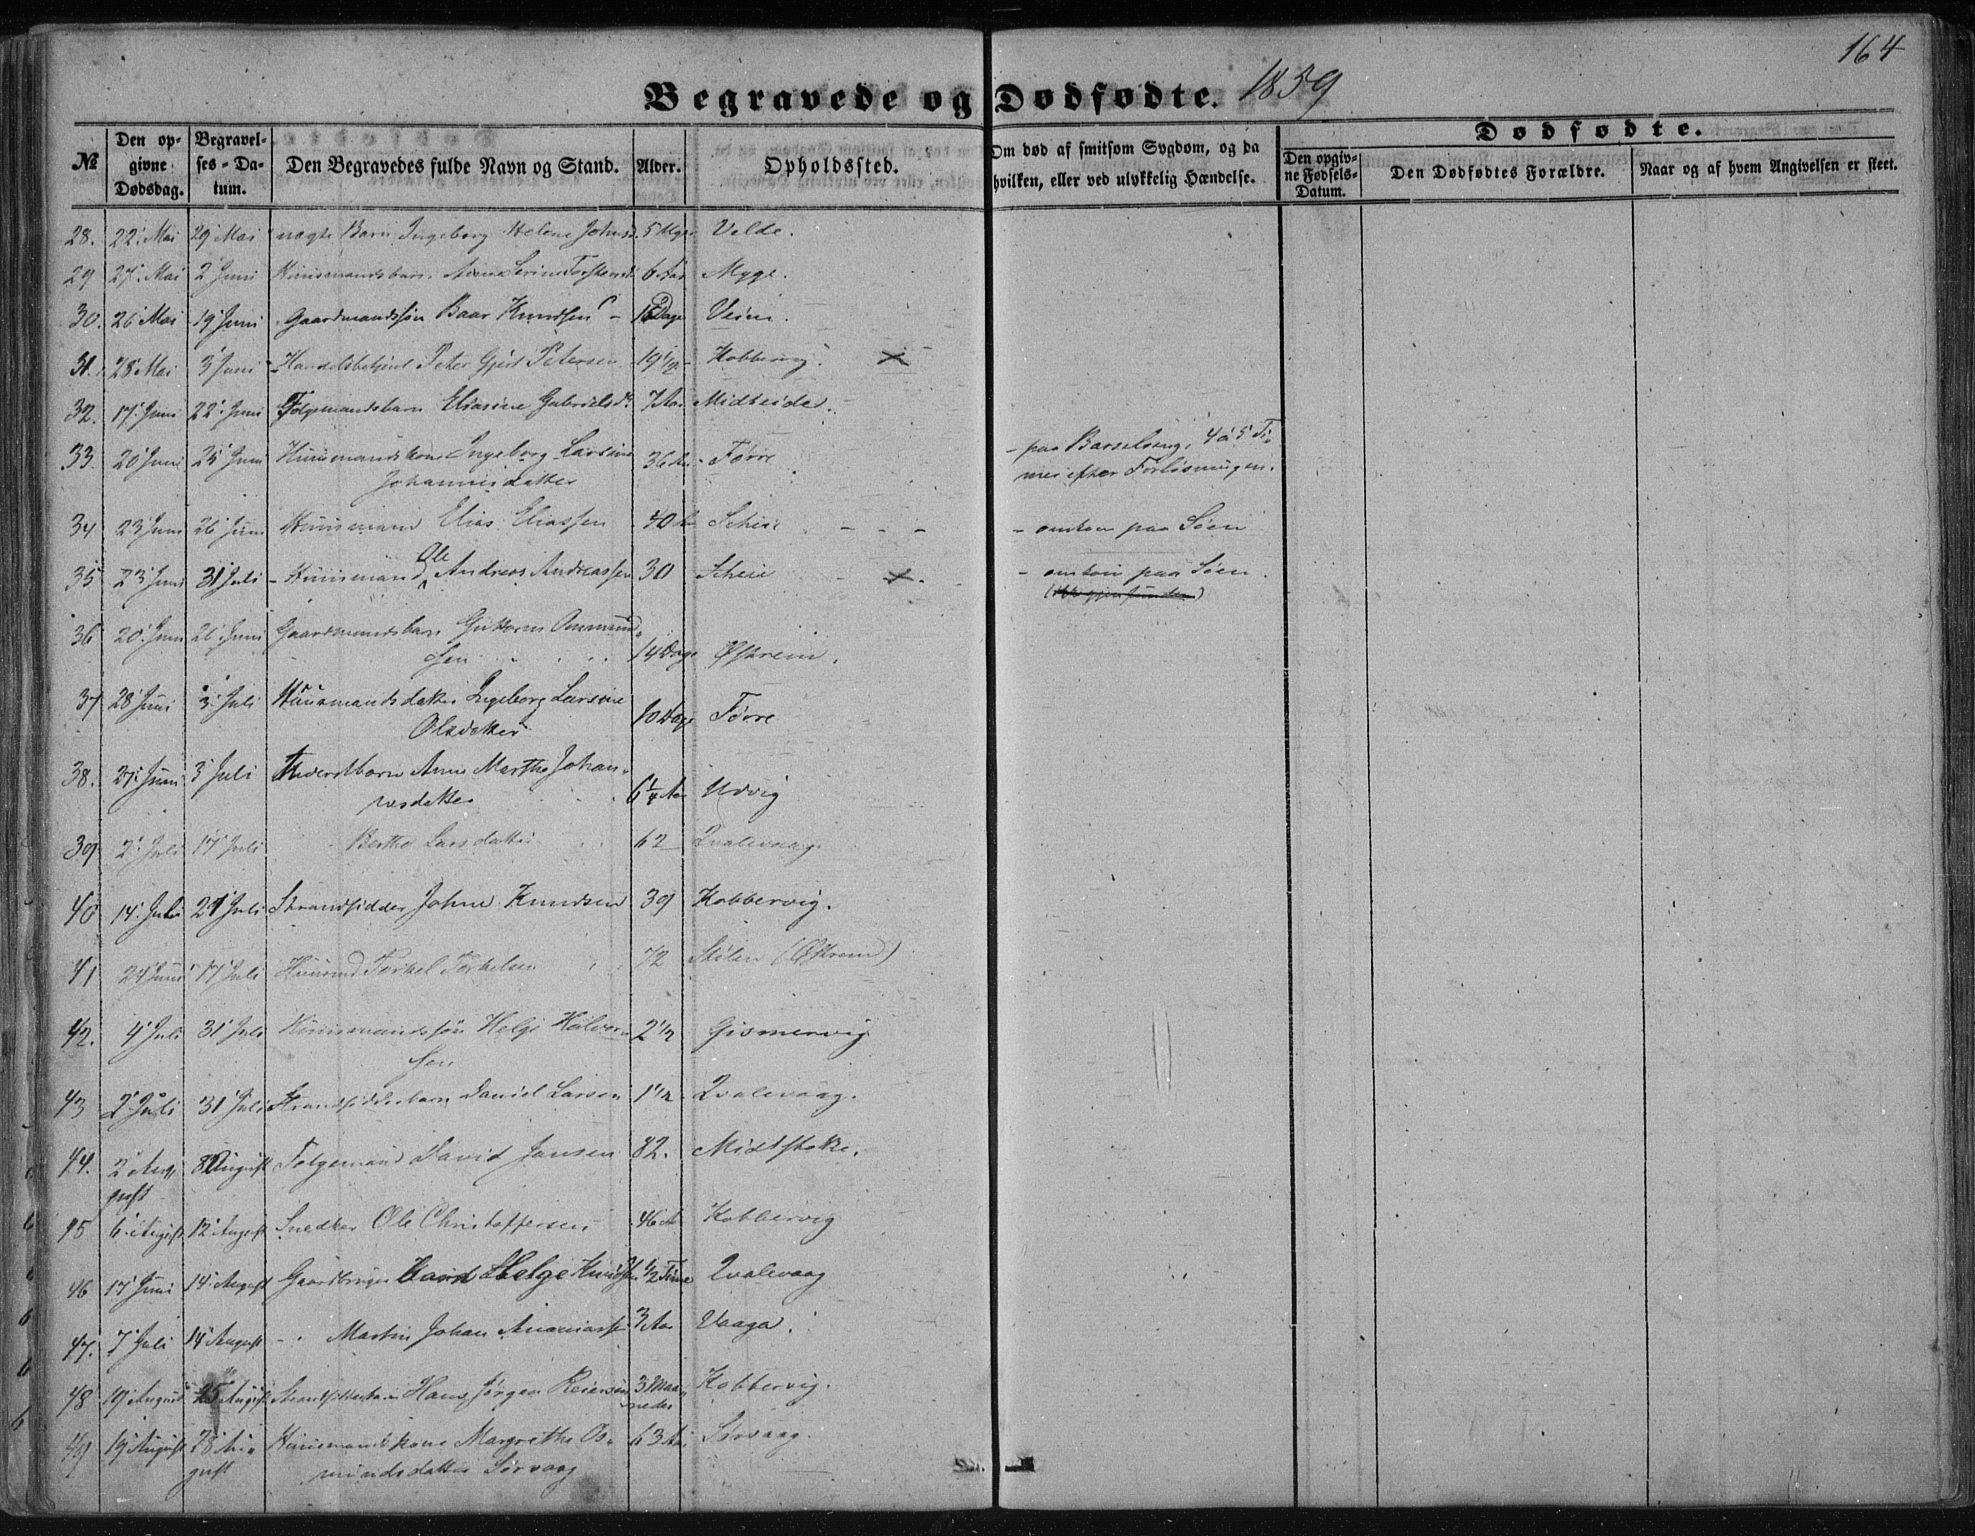 164
Begravede og Dødfødte. 1859
Dødfødte.
№ Den opgivne Dødsdag. Begravelses-Datum. Den Begravedes fulde Navn og Stand. Alder. Opholdssted. Om død af smitsom Sygdom, og da hvilken, eller ved ulykkelig Hændelse. Den opgivne Fødsels-Datum. Den Dødfødtes Forældre. Naar og af hvem Angivelsen er skeet.
28. 22' Mai 29' Mai uægte Barn Ingeborg Helene Johnsd. 5 Velde.
29 27' Mai 2' Juni Huusmandsbarn 6 Aar Myge.
30. 26' Mai 19' Juni Gaardmandssøn Baar Knudsen Dage
31. 28' Mai 3' Juni Handelsbetjent Peter Gjert Petersen 19 1/2 Kobbervig
32. 17' Juni 22' Juni Følgemandsbarn Eliasine Gabrielsd. 7 Aar Midteide.
33. 20' Juni 25' Juni Huusmandskone Ingeborg Larsine 36 Aar Førre - paa Barselseng, 4 à 5 Ti-
Johannisdatter mer efter Forløsningen.
34 23' Juni 26' Juni Huusmand Elias Eliassen 40 Aar Scheie - - - - omkom paa Søen
Ole
35 23' Juni 31' Juli - Huusmand Andreas Andreassen 30 Scheie - omkom paa Søen.
36 20' Juni 26' Juni Gaardmandsbarn Guttorm Ommund-
sen 14 Dage Østrem.
37 28' Juni 3' Juli Huusmandsdatter Ingeborg Larsine
Olsdatter 10 Dage Førre
38. 27' Juni 3' Juli Inderstbarn Anne Marthe Johan-
nesdatter 6 1/4 Aar Udvig
39 2' Juli 17' Juli Berthe Larsdatter 62 Qvalevaag.
40 14' Juli 24' Juli Strandsidder Johne Knudsen 39 Kobbervig.
41 24' Juni 17' Juli Huusmd Torkel Torkelsen 72 (Østrem)
42. 4' Juli 31' Juli Huusmandssøn Helge Halvor-
sen 2 1/2 Gismervig
43 2' Juli 31' Juli Strandsidderbarn Daniel Larsen 1 1/2 Qvalevaag.
44. 2' Au- 8' August Følgemand David Jansen 82. Midtstokke.
gust
45 6' August 12' August Snedker Ole Christoffersen 46 A Kobbervig
46 17' Juni 14' August Gaardbruger Helge Knudsen 1/2 Time Qvalevaag
47. 7' Juli 14' August - " Martin Johan Ananiassen 3 Aar Vaaga.
48 19' August 25' August Strandsidderbarn Hans Jørgen Reiersen 3 Maa- Kobbervig.
neder
49 19' August 28' Au- Huusmandskone Margrethe Os- 63 Aar Sørvaag.
gust mundsdatter Sørvaag